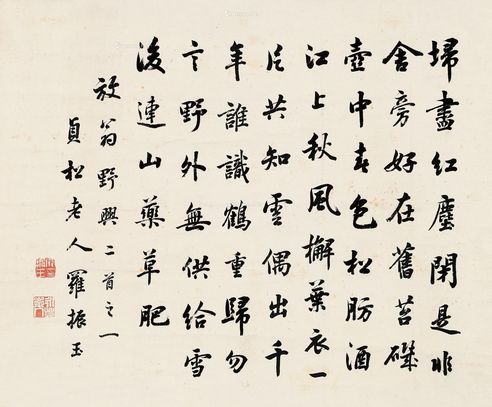 埽盡紅塵閉是非
舍旁好在舊苔磯
壺中春色松肪酒
江上秋風槲葉衣一
片共知雲偶出千
年誰識鶴重歸勿
言野外無供給雪
後連山藥草肥
放翁野興二首之一
貞松老人羅振玉